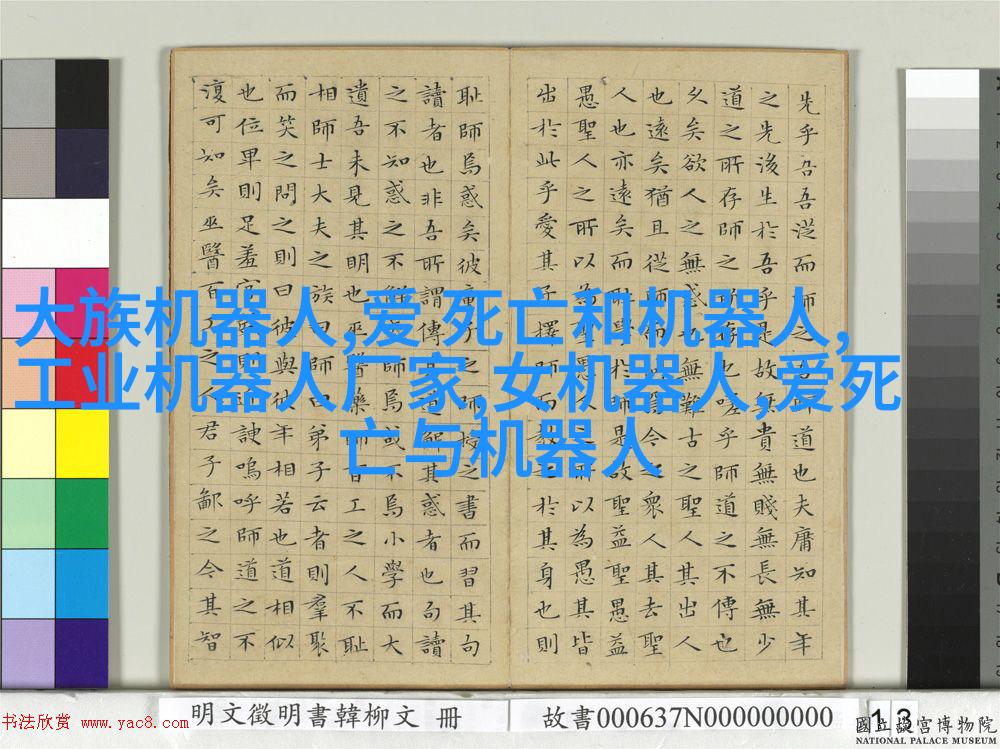 先乎吾吾從而師之吾師道也夫庸知其年
之先後生於吾乎是故無貴無賤無長無少
道之所存師之所存也嗟乎師道之不傳也
久矣欲人之無惑也無難古之聖人其出人
也遠矣猶且從師而問焉今之眾人其去聖
人也亦遠矣而恥學於師是故聖益聖愚益
愚聖人之所以為聖愚人之所以為愚其皆
出於此乎愛其子擇師而教之於其身也則
恥師焉惑矣彼童子之師授之書而習其句
讀者也非吾所謂傳其道解其惑者也句讀
之不知惑之不解或師焉或不焉小學而大
遺吾未見其明也巫醫樂師百工之人不恥
相師士大夫之族曰師曰弟子云者則羣聚
而笑之問之則曰彼與彼年相若也道相似
也位卑則足羞官盛則近諛嗚呼師道之不
復可知矣巫醫百工之人君子鄙之今其智
大族机器人,爱 死亡和机器人,
工业机器人厂家,女机器人,爱死
亡与机器人
明文徵明書韓柳文 冊
故書000637N000000000
13
书法欣赏 www.yac8.com
國立故宮博物院
NATIONAL PALACE MUSEUM